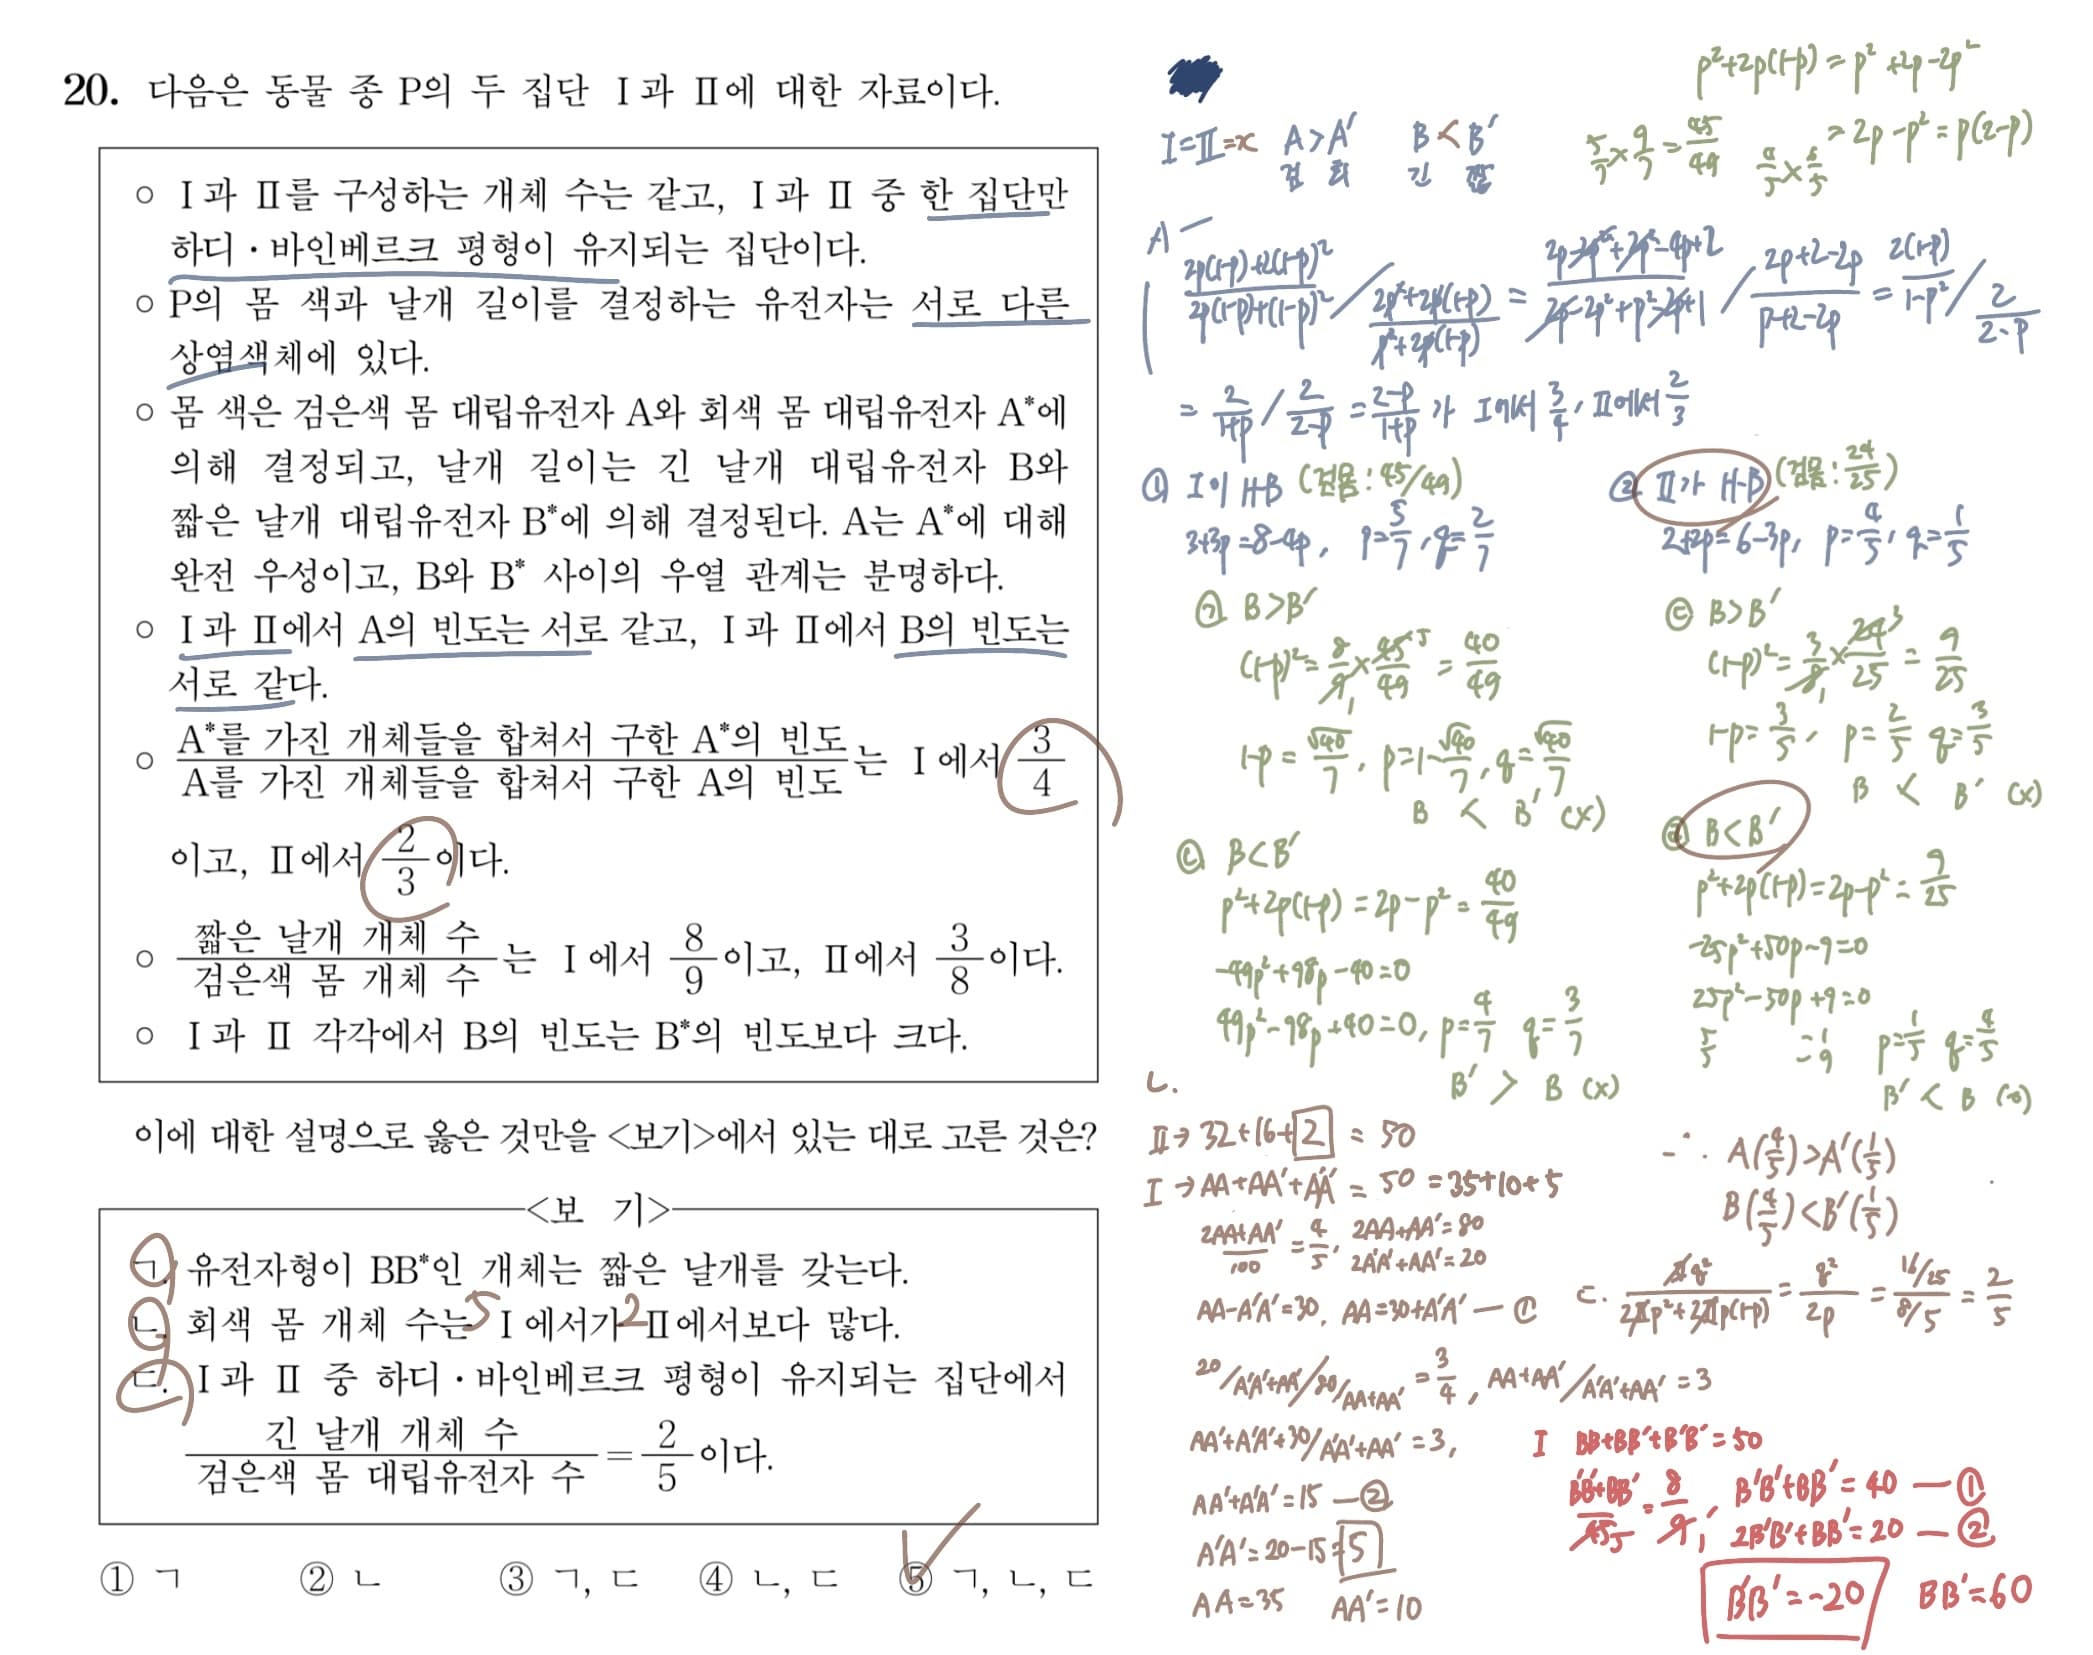 20. 다음은 동물 종 P의 두 집단 Ⅰ과 Ⅱ에 대한 자료이다.
○ Ⅰ과 Ⅱ를 구성하는 개체 수는 같고, Ⅰ과 Ⅱ 중 한 집단만
하디·바인베르크 평형이 유지되는 집단이다.
○ P의 몸 색과 날개 길이를 결정하는 유전자는 서로 다른
상염색체에 있다.
○ 몸 색은 검은색 몸 대립유전자 A와 회색 몸 대립유전자 A*에
의해 결정되고, 날개 길이는 긴 날개 대립유전자 B와
짧은 날개 대립유전자 B*에 의해 결정된다. A는 A*에 대해
완전 우성이고, B와 B* 사이의 우열 관계는 분명하다.
○ Ⅰ과 Ⅱ에서 A의 빈도는 서로 같고, Ⅰ과 Ⅱ에서 B의 빈도는
서로 같다.
○ A*를 가진 개체들을 합쳐서 구한 A*의 빈도 / A를 가진 개체들을 합쳐서 구한 A의 빈도 는 Ⅰ에서 3/4
이고, Ⅱ에서 2/3이다.
○ 짧은 날개 개체 수 / 검은색 몸 개체 수 는 Ⅰ에서 8/9이고, Ⅱ에서 3/8이다.
○ Ⅰ과 Ⅱ 각각에서 B의 빈도는 B*의 빈도보다 크다.
이에 대한 설명으로 옳은 것만을 <보기>에서 있는 대로 고른 것은?
<보 기>
ㄱ. 유전자형이 BB*인 개체는 짧은 날개를 갖는다.
ㄴ. 회색 몸 개체 수는 Ⅰ에서가 Ⅱ에서보다 많다.
5 2
ㄷ. Ⅰ과 Ⅱ 중 하디·바인베르크 평형이 유지되는 집단에서
긴 날개 개체 수 / 검은색 몸 대립유전자 수 = 2/5이다.
① ㄱ ② ㄴ ③ ㄱ, ㄷ ④ ㄴ, ㄷ ⑤ ㄱ, ㄴ, ㄷ
p²+2p(1-p) = p²+2p-2p²
= 2p-p² = p(2-p)
Ⅰ=Ⅱ=x A>A' B<B'
검 회 긴 짧
5/7×9/7=45/49 4/5×6/5
A
2p(1-p)+2(1-p)²/2p(1-p)+(1-p)² / 2p²+2p(1-p)/p²+2p(1-p) = 2p-2p²+2p²-4p+2/2p-2p²+p²-2p+1 / 2p+2-2p/p+2-2p = 2(1-p)/1-p² / 2/2-p
= 2/1+p / 2/2-p = 2-p/1+p 가 Ⅰ에서 3/4, Ⅱ에서 2/3
① Ⅰ이 H-B (검몸: 45/49)
3+3p=8-4p, p=5/7, q=2/7
㉠ B>B'
(1-p)²=8/9×45/49=40/49
1-p=√40/7, p=1-√40/7, q=√40/7
B < B' (x)
㉡ B<B'
p²+2p(1-p)=2p-p²=40/49
-49p²+98p-40=0
49p²-98p+40=0, p=4/7 q=3/7
B' > B (x)
② Ⅱ가 H-B (검몸: 24/25)
2+2p=6-3p, p=4/5, q=1/5
㉢ B>B'
(1-p)²=3/8×24/25=9/25
1-p=3/5, p=2/5 q=3/5
B < B' (x)
㉣ B<B'
p²+2p(1-p)=2p-p²=9/25
-25p²+50p-9=0
25p²-50p+9=0
p=1/5 q=4/5
B' < B (o)
∴ A(4/5)>A'(1/5)
B(4/5)<B'(1/5)
ㄴ.
Ⅱ→ 32+16+2 = 50
Ⅰ→ AA+AA'+A'A' = 50 = 35+10+5
2AA+AA'/100=4/5, 2AA+AA'=80
2A'A'+AA'=20
AA-A'A'=30, AA=30+A'A' — ①
20/A'A'+AA' / 80/AA+AA' = 3/4, AA+AA'/A'A'+AA' = 3
AA'+A'A'+30/A'A'+AA' = 3,
AA'+A'A'=15 — ②
A'A'=20-15=5
AA=35 AA'=10
ㄷ. q²/2p²+2p(1-p) = q²/2p = 16/25/8/5 = 2/5
Ⅰ BB+BB'+B'B'=50
B'B'+BB'/45=8/9, B'B'+BB'=40 — ①
2B'B'+BB'=20 — ②
B'B'=-20 BB'=60